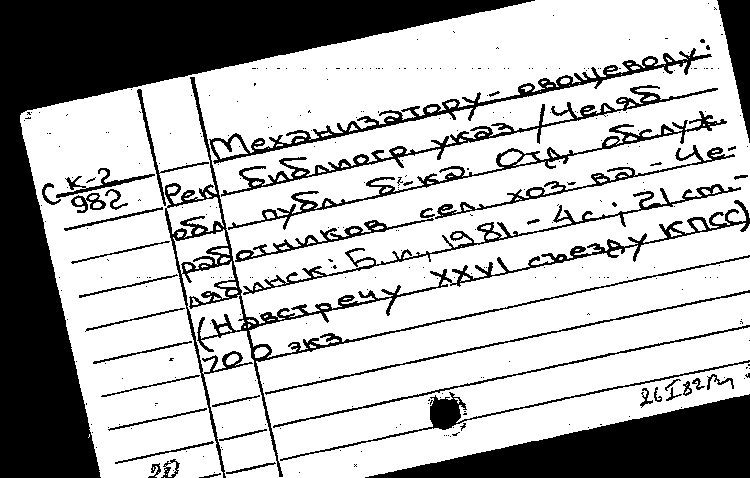 Механизатору-овощеводу:
Рек. библиогр. указ. / Челяб.
обл. публ. б-ка. Отд. обслуж.
работников сел. хоз-ва - Че-
лябинск: Б. и., 1981. - 4 с.; 21 см. -
(Навстречу XXVI съезду КПСС)
700 экз.
С К-2
982
20